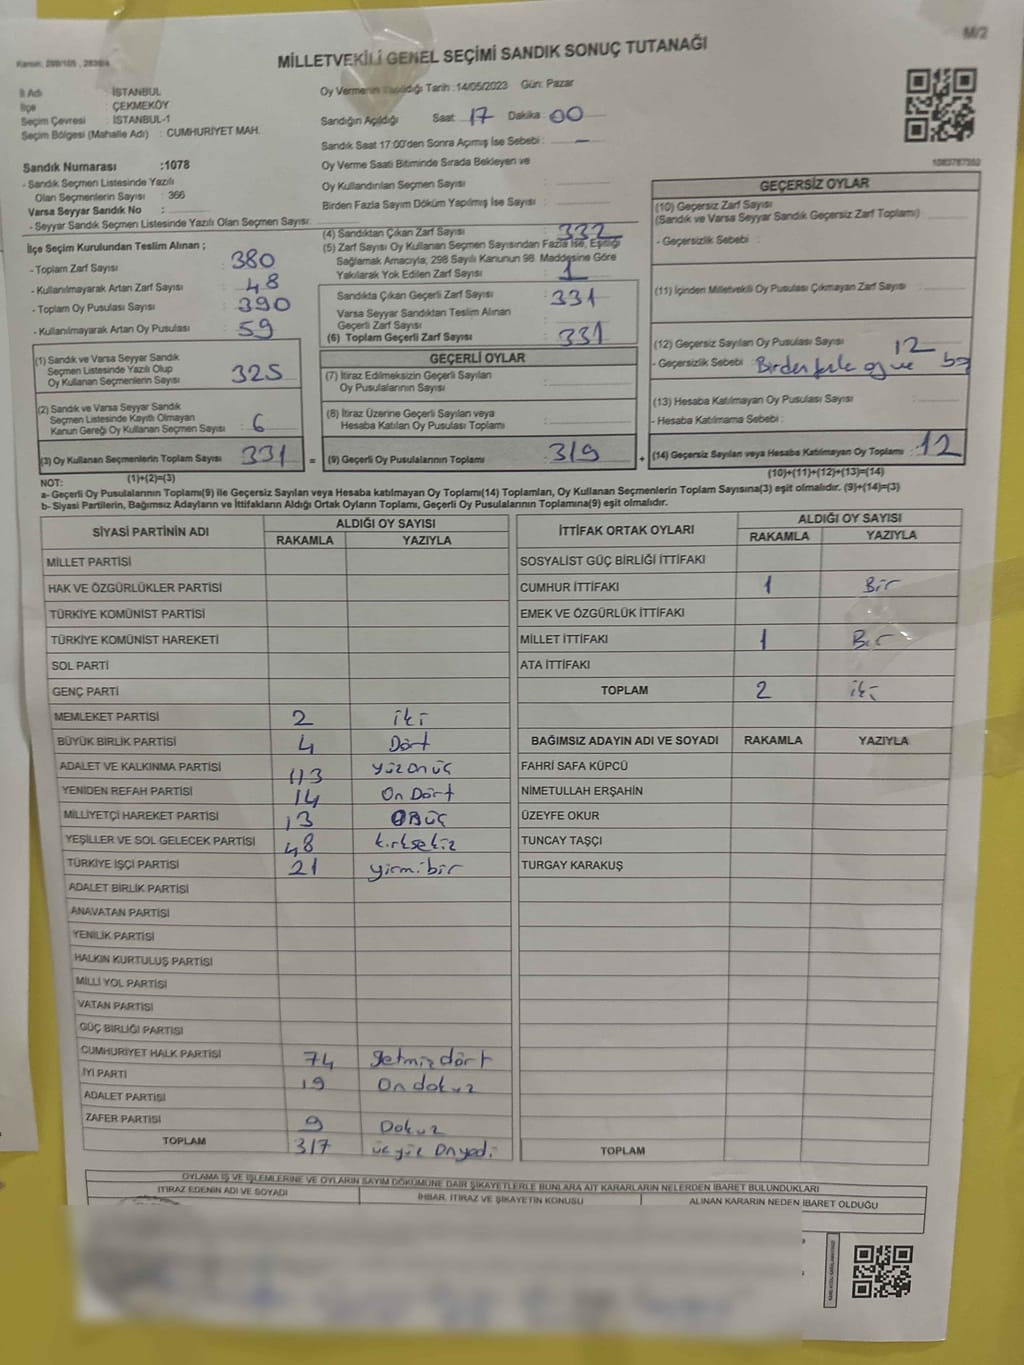 M/2
MİLLETVEKİLİ GENEL SEÇİMİ SANDIK SONUÇ TUTANAĞI
İl Adı : İSTANBUL
İlçe : ÇEKMEKÖY
Seçim Çevresi : İSTANBUL-1
Seçim Bölgesi (Mahalle Adı) : CUMHURİYET MAH.
Sandık Numarası :1078
- Sandık Seçmen Listesinde Yazılı
Olan Seçmenlerin Sayısı : 366
Varsa Seyyar Sandık No :
- Seyyar Sandık Seçmen Listesinde Yazılı Olan Seçmen Sayısı:
Oy Vermenin Yapıldığı Tarih :14/05/2023 Gün: Pazar
Sandığın Açıldığı Saat: 17 Dakika: 00
Sandık Saat 17:00'den Sonra Açımış İse Sebebi : -
Oy Verme Saati Bitiminde Sırada Bekleyen ve
Oy Kullandırılan Seçmen Sayısı :
Birden Fazla Sayım Döküm Yapılmış İse Sayısı :
1083787352
İlçe Seçim Kurulundan Teslim Alınan ;
- Toplam Zarf Sayısı : 380
- Kullanılmayarak Artan Zarf Sayısı : 48
- Toplam Oy Pusulası Sayısı : 390
- Kullanılmayarak Artan Oy Pusulası : 59
(1) Sandık ve Varsa Seyyar Sandık
Seçmen Listesinde Yazılı Olup
Oy Kullanan Seçmenlerin Sayısı : 325
(2) Sandık ve Varsa Seyyar Sandık
Seçmen Listesinde Kayıtlı Olmayan
Kanun Gereği Oy Kullanan Seçmen Sayısı : 6
(3) Oy Kullanan Seçmenlerin Toplam Sayısı : 331
(1)+(2)=(3)
(4) Sandıktan Çıkan Zarf Sayısı : 332
(5) Zarf Sayısı Oy Kullanan Seçmen Sayısından Fazla İse, Eşitliği
Sağlamak Amacıyla, 298 Sayılı Kanunun 98. Maddesine Göre
Yakılarak Yok Edilen Zarf Sayısı : 1
Sandıkta Çıkan Geçerli Zarf Sayısı : 331
Varsa Seyyar Sandıktan Teslim Alınan
Geçerli Zarf Sayısı :
(6) Toplam Geçerli Zarf Sayısı : 331
GEÇERLİ OYLAR
(7) İtiraz Edilmeksizin Geçerli Sayılan
Oy Pusulalarının Sayısı :
(8) İtiraz Üzerine Geçerli Sayılan veya
Hesaba Katılan Oy Pusulası Toplamı :
= (9) Geçerli Oy Pusulalarının Toplamı : 319
GEÇERSİZ OYLAR
(10) Geçersiz Zarf Sayısı
(Sandık ve Varsa Seyyar Sandık Geçersiz Zarf Toplamı) :
- Geçersizlik Sebebi :
(11) İçinden Milletvekili Oy Pusulası Çıkmayan Zarf Sayısı :
(12) Geçersiz Sayılan Oy Pusulası Sayısı : 12
- Geçersizlik Sebebi : Birden fazla oy ve
(13) Hesaba Katılmayan Oy Pusulası Sayısı :
- Hesaba Katılmama Sebebi :
+ (14) Geçersiz Sayılan veya Hesaba Katılmayan Oy Toplamı : 12
(10)+(11)+(12)+(13)=(14)
NOT:
a- Geçerli Oy Pusulalarının Toplamı(9) ile Geçersiz Sayılan veya Hesaba katılmayan Oy Toplamı(14) Toplamları, Oy Kullanan Seçmenlerin Toplam Sayısına(3) eşit olmalıdır. (9)+(14)=(3)
b- Siyasi Partilerin, Bağımsız Adayların ve İttifakların Aldığı Ortak Oyların Toplamı, Geçerli Oy Pusulalarının Toplamına(9) eşit olmalıdır.
SİYASİ PARTİNİN ADI ALDIĞI OY SAYISI
RAKAMLA YAZIYLA
MİLLET PARTİSİ
HAK VE ÖZGÜRLÜKLER PARTİSİ
TÜRKİYE KOMÜNİST PARTİSİ
TÜRKİYE KOMÜNİST HAREKETİ
SOL PARTİ
GENÇ PARTİ
MEMLEKET PARTİSİ 2 iki
BÜYÜK BİRLİK PARTİSİ 4 Dört
ADALET VE KALKINMA PARTİSİ 113 yüzonüç
YENİDEN REFAH PARTİSİ 14 On Dört
MİLLİYETÇİ HAREKET PARTİSİ 13 Onüç
YEŞİLLER VE SOL GELECEK PARTİSİ 48 kırksekiz
TÜRKİYE İŞÇİ PARTİSİ 21 yirmibir
ADALET BİRLİK PARTİSİ
ANAVATAN PARTİSİ
YENİLİK PARTİSİ
HALKIN KURTULUŞ PARTİSİ
MİLLİ YOL PARTİSİ
VATAN PARTİSİ
GÜÇ BİRLİĞİ PARTİSİ
CUMHURİYET HALK PARTİSİ 74 Yetmişdört
İYİ PARTİ 19 On dokuz
ADALET PARTİSİ
ZAFER PARTİSİ 9 Dokuz
TOPLAM 317 üçyüz Onyedi
İTTİFAK ORTAK OYLARI ALDIĞI OY SAYISI
RAKAMLA YAZIYLA
SOSYALİST GÜÇ BİRLİĞİ İTTİFAKI
CUMHUR İTTİFAKI 1 Bir
EMEK VE ÖZGÜRLÜK İTTİFAKI
MİLLET İTTİFAKI 1 Bir
ATA İTTİFAKI
TOPLAM 2 iki
BAĞIMSIZ ADAYIN ADI VE SOYADI RAKAMLA YAZIYLA
FAHRİ SAFA KÜPCÜ
NİMETULLAH ERŞAHİN
ÜZEYFE OKUR
TUNCAY TAŞÇI
TURGAY KARAKUŞ
TOPLAM
OYLAMA İŞ VE İŞLEMLERİNE VE OYLARIN SAYIM DÖKÜMÜNE DAİR ŞİKAYETLERLE BUNLARA AİT KARARLARIN NELERDEN İBARET BULUNDUKLARI
İTİRAZ EDENİN ADI VE SOYADI İHBAR, İTİRAZ VE ŞİKAYETİN KONUSU ALINAN KARARIN NEDEN İBARET OLDUĞU